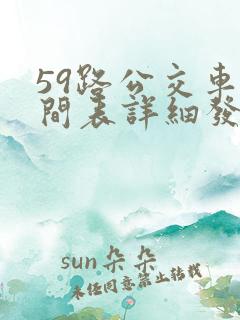 59路公交車
間表詳細發
sun朵朵
未经同意禁止转载